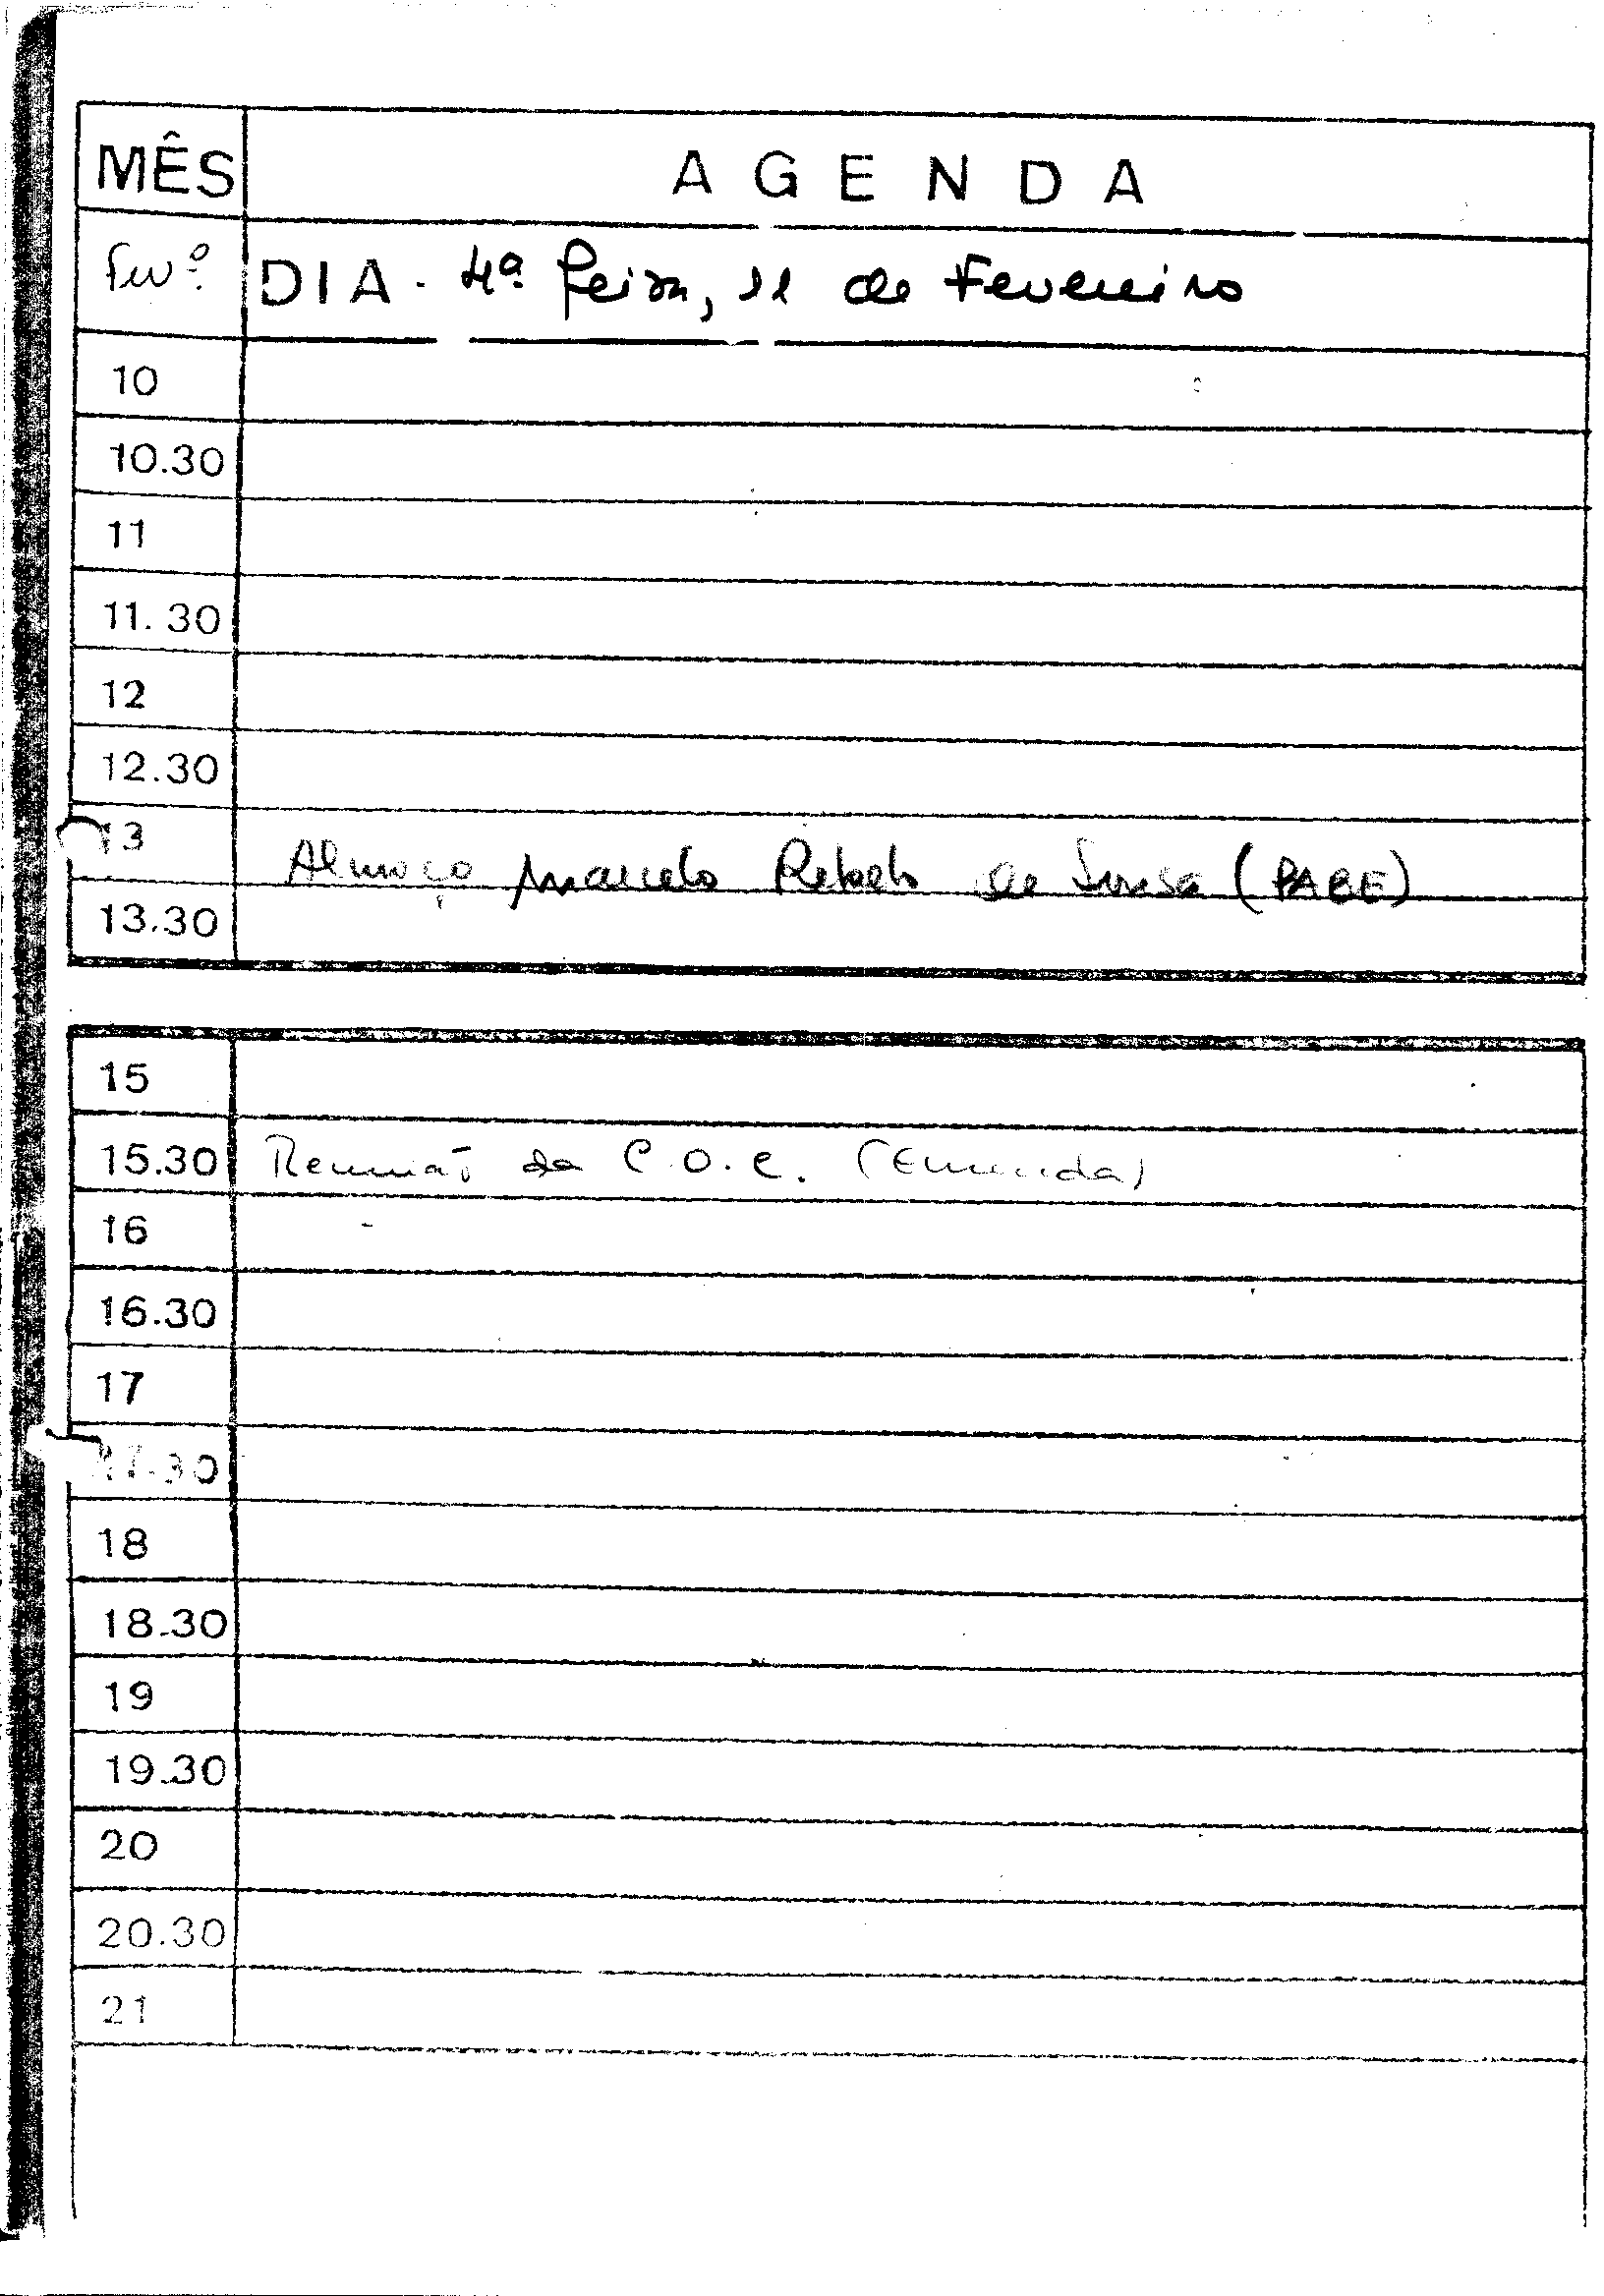 MÊS AGENDA
Fevº. DIA. 4ª. feira, 11 de Fevereiro
10
10.30
11
11.30
12
12.30
13 Almoço Marcelo Rebelo de Sousa (PABE)
13.30
15
15.30 Reunião da C.O.C. (Emenda)
16
16.30
17
17.30
18
18.30
19
19.30
20
20.30
21